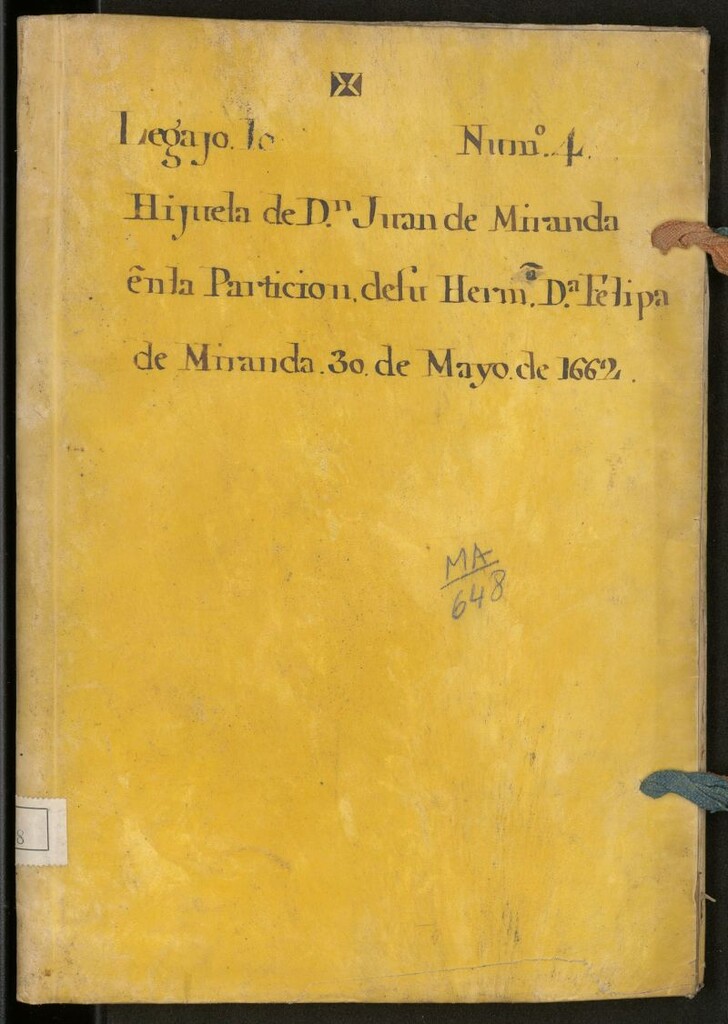 Legajo. 10 Numº. 4.
Hijuela de D.ⁿ Juan de Miranda
ēnla Particion. desu Herm.ª D.ª Félipa
de Miranda. 30. de Mayo. de 1662.
MA
648
8